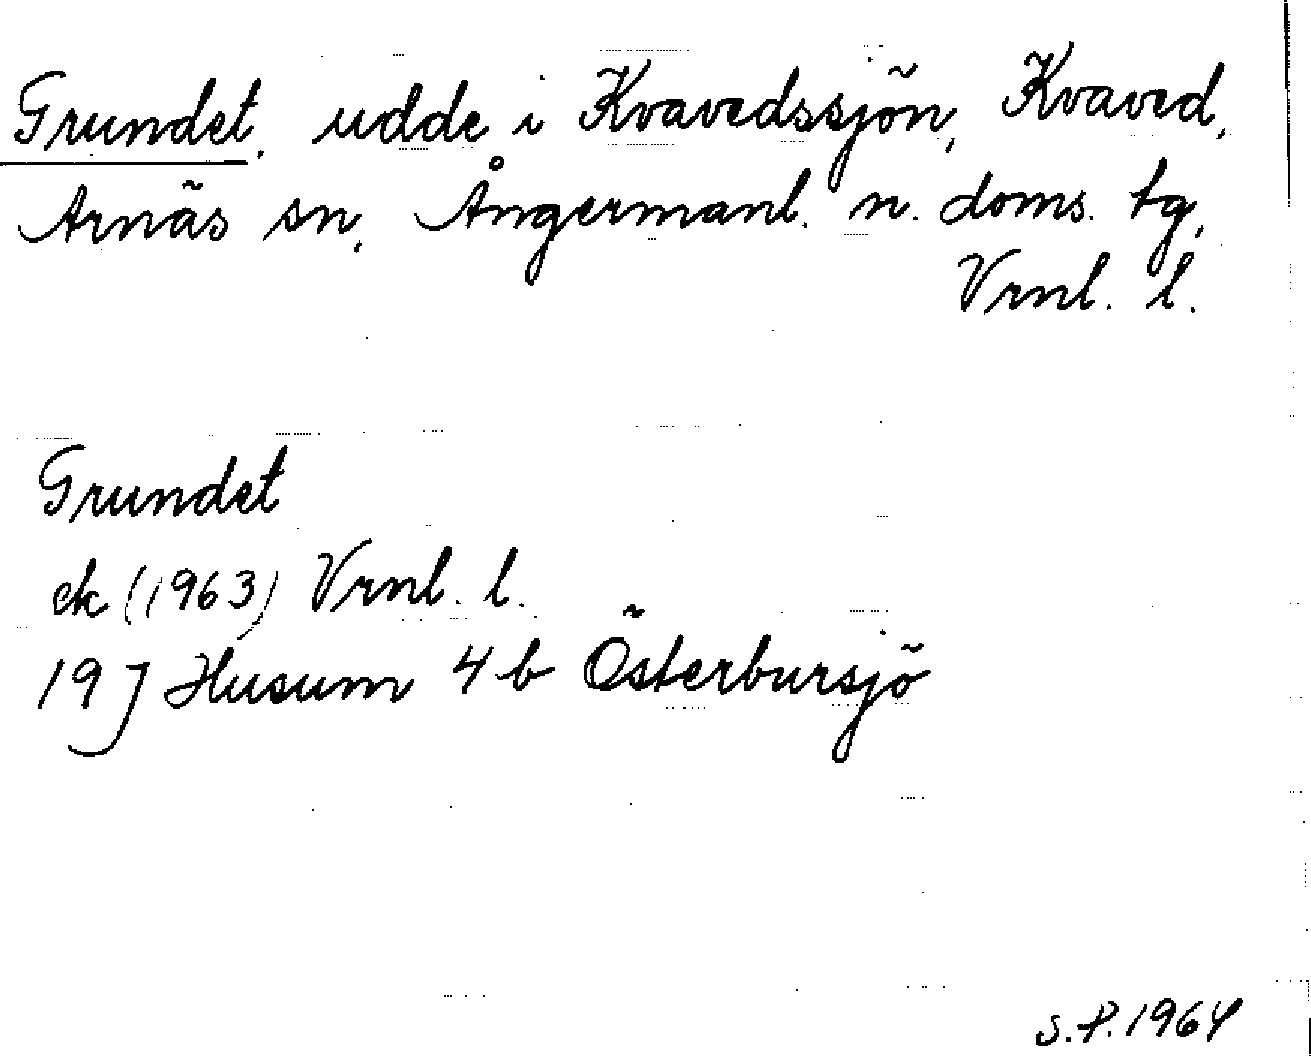 Grundet, udde i Kvavedssjön, Kvaved,
Arnäs sn, Ångermanl. n. doms. tg,
Vrnl. l.
Grundet
ek (1963) Vrnl. l.
19 J Husum 4 b Österbursjö
S.P. 1964